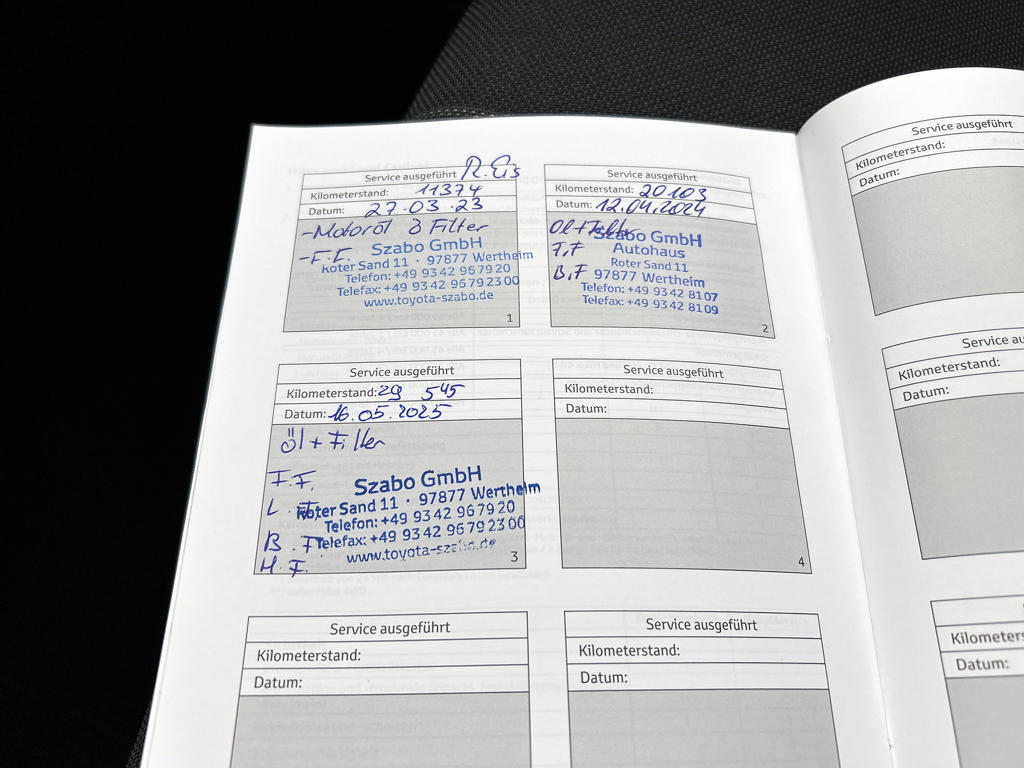 Service ausgeführt
Kilometerstand: 11374
Datum: 27.03.23
-Motoröl & Filter
-F.F.
Szabo GmbH
Roter Sand 11 · 97877 Wertheim
Telefon: +49 93 42 96 79 20
Telefax: +49 93 42 96 79 23 00
www.toyota-szabo.de
1
Service ausgeführt
Kilometerstand: 20103
Datum: 12.04.2024
Öl+Filter
F,F
B,F
Szabo GmbH
Autohaus
Roter Sand 11
97877 Wertheim
Telefon: +49 93 42 81 07
Telefax: +49 93 42 81 09
2
Service ausgeführt
Kilometerstand: 29 545
Datum: 16.05.2025
Öl + Filter
F.F.
L.F.
B.F
H.F.
Szabo GmbH
Roter Sand 11 · 97877 Wertheim
Telefon: +49 93 42 96 79 20
Telefax: +49 93 42 96 79 23 00
www.toyota-szabo.de
3
Service ausgeführt
Kilometerstand:
Datum:
4
Service ausgeführt
Kilometerstand:
Datum:
Service ausgeführt
Kilometerstand:
Datum:
Service ausgeführt
Kilometerstand:
Datum:
Service au
Kilometerstand:
Datum:
Kilometers
Datum: